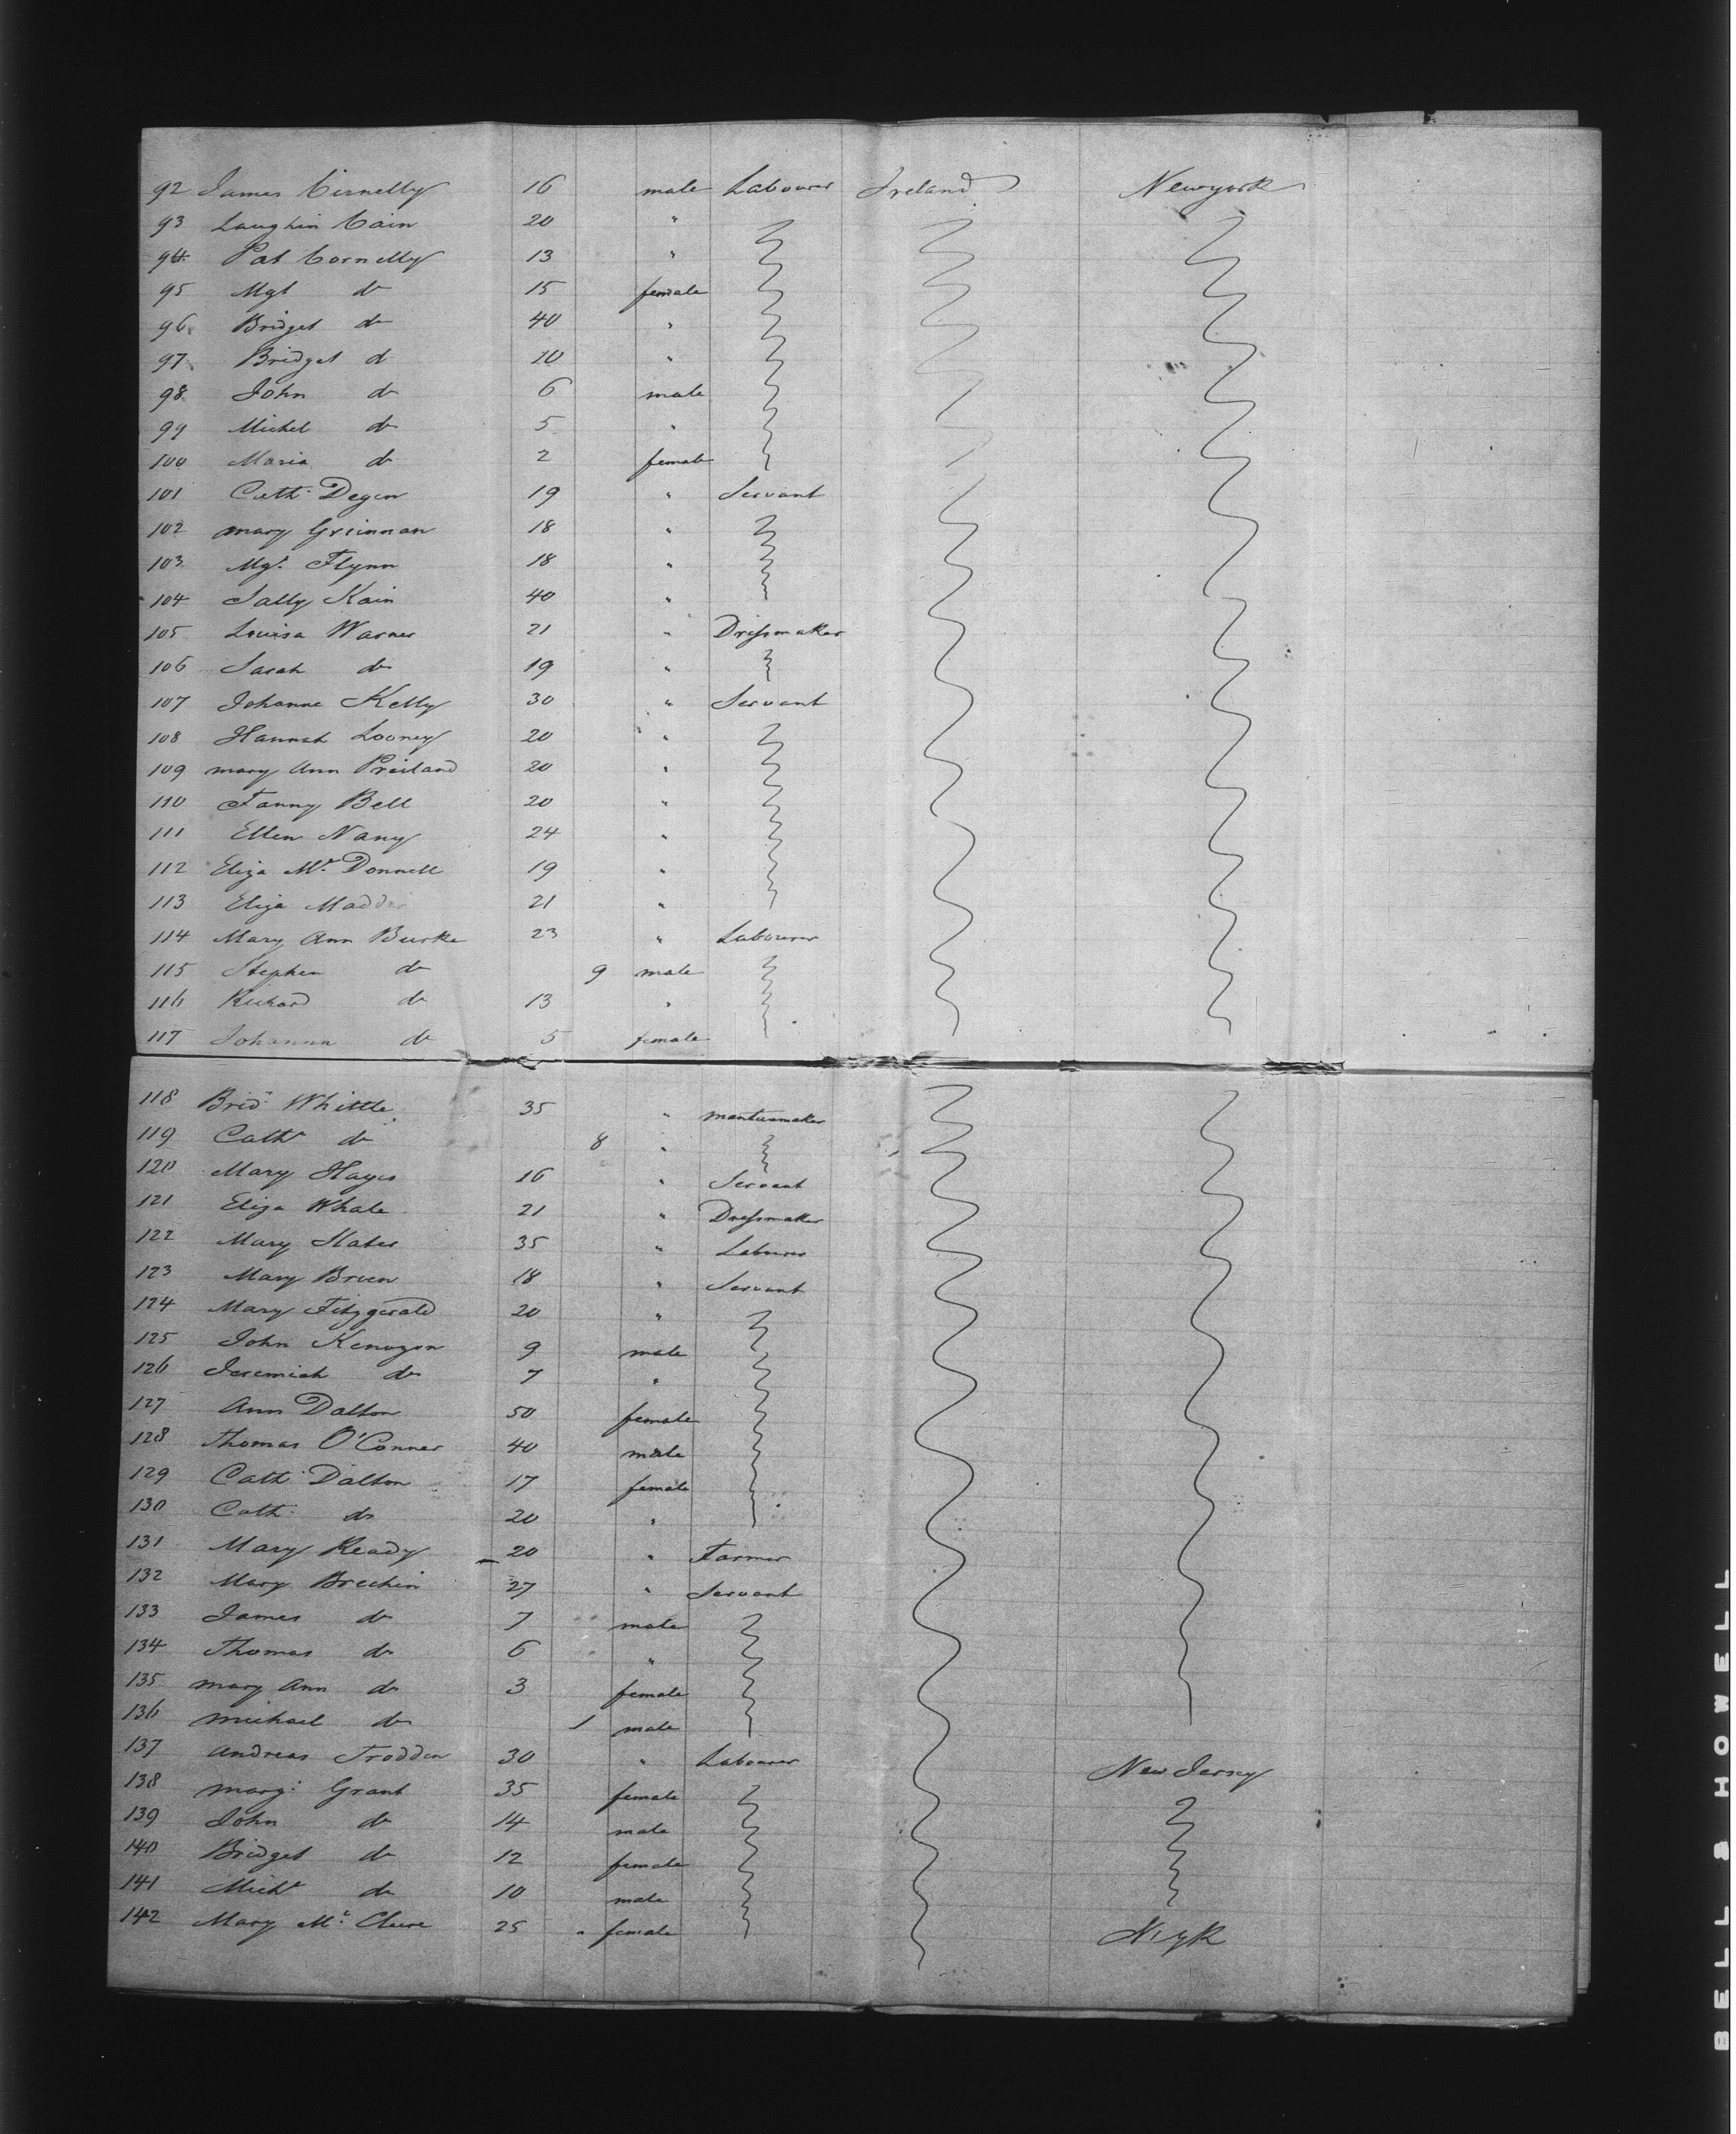 92 James Cornelly 16 male Labourer Ireland Newyork
93 Laughin Cain 20 "
94 Pat Cornelly 13 "
95 Mgt do 15 female
96 Bridget do 40 "
97 Bridget do 10 "
98 John do 6 male
99 Michel do 5 "
100 Maria do 2 female
101 Cath. Degen 19 " Servant
102 mary Grinnan 18 "
103 Mgt. Flynn 18 "
104 Sally Kain 40 "
105 Louisa Warner 21 " Dressmaker
106 Sarah do 19 "
107 Johanna Kelly 30 " Servant
108 Hannah Looney 20 "
109 mary Ann 20 "
110 Fanny Bell 20 "
111 Ellen Nany 24 "
112 Eliza Mc Donnell 19 "
113 Eliza 21 "
114 Mary Ann Burke 23 " Labourer
115 Stephen do 9 male
116 Richard do 13 "
117 Johanna do 5 female
118 Brid. Whittle 35 " mantuamaker
119 Cath. do 8 "
120 Mary Hayes 16 " Servant
121 Eliza Whale 21 " Dressmaker
122 Mary Slater 35 " Labourer
123 Mary Bruen 18 " Servant
124 Mary Fitzgerald 20 "
125 John 9 male
126 Jeremiah do 7 "
127 Ann Dalton 50 female
128 Thomas O'Conner 40 male
129 Cath. Dalton 17 female
130 Cath. do 20 "
131 Mary Ready 20 " Farmer
132 Mary Brechin 27 " Servant
133 James do 7 male
134 Thomas do 6 "
135 mary Ann do 3 female
136 michael do 1 male
137 Andreas Trodden 30 " Labourer New Jersey
138 marg. Grant 35 female
139 John do 14 male
140 Bridget do 12 female
141 Michl do 10 male
142 Mary Mc Clure 25 " female N. yk
BELL & HOWELL